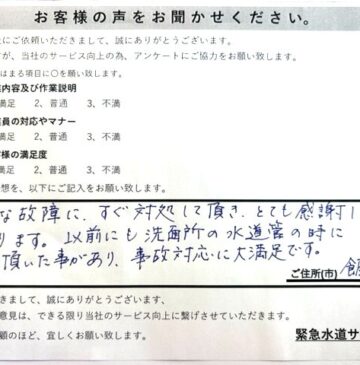 お客様の声をお聞かせください。
にご依頼いただきまして、誠にありがとうございます。
が、当社のサービス向上の為、アンケートにご協力をお願い致します。
はまる項目に〇を願い致します。
内容及び作業説明
満足 2、普通 3、不満
員の対応やマナー
満足 2、普通 3、不満
様の満足度
満足 2、普通 3、不満
想を、以下にご記入をお願い致します。
な故障に、すぐ対処して頂き、とても感謝し
ります。以前にも洗面所の水道管の時に
頂いた事があり、事故対応に大満足です。
ご住所(市)
きまして、誠にありがとうございます、
意見は、できる限り当社のサービス向上に繋げさせていただきます。
顧のほど、宜しくお願い致します。
緊急水道サ